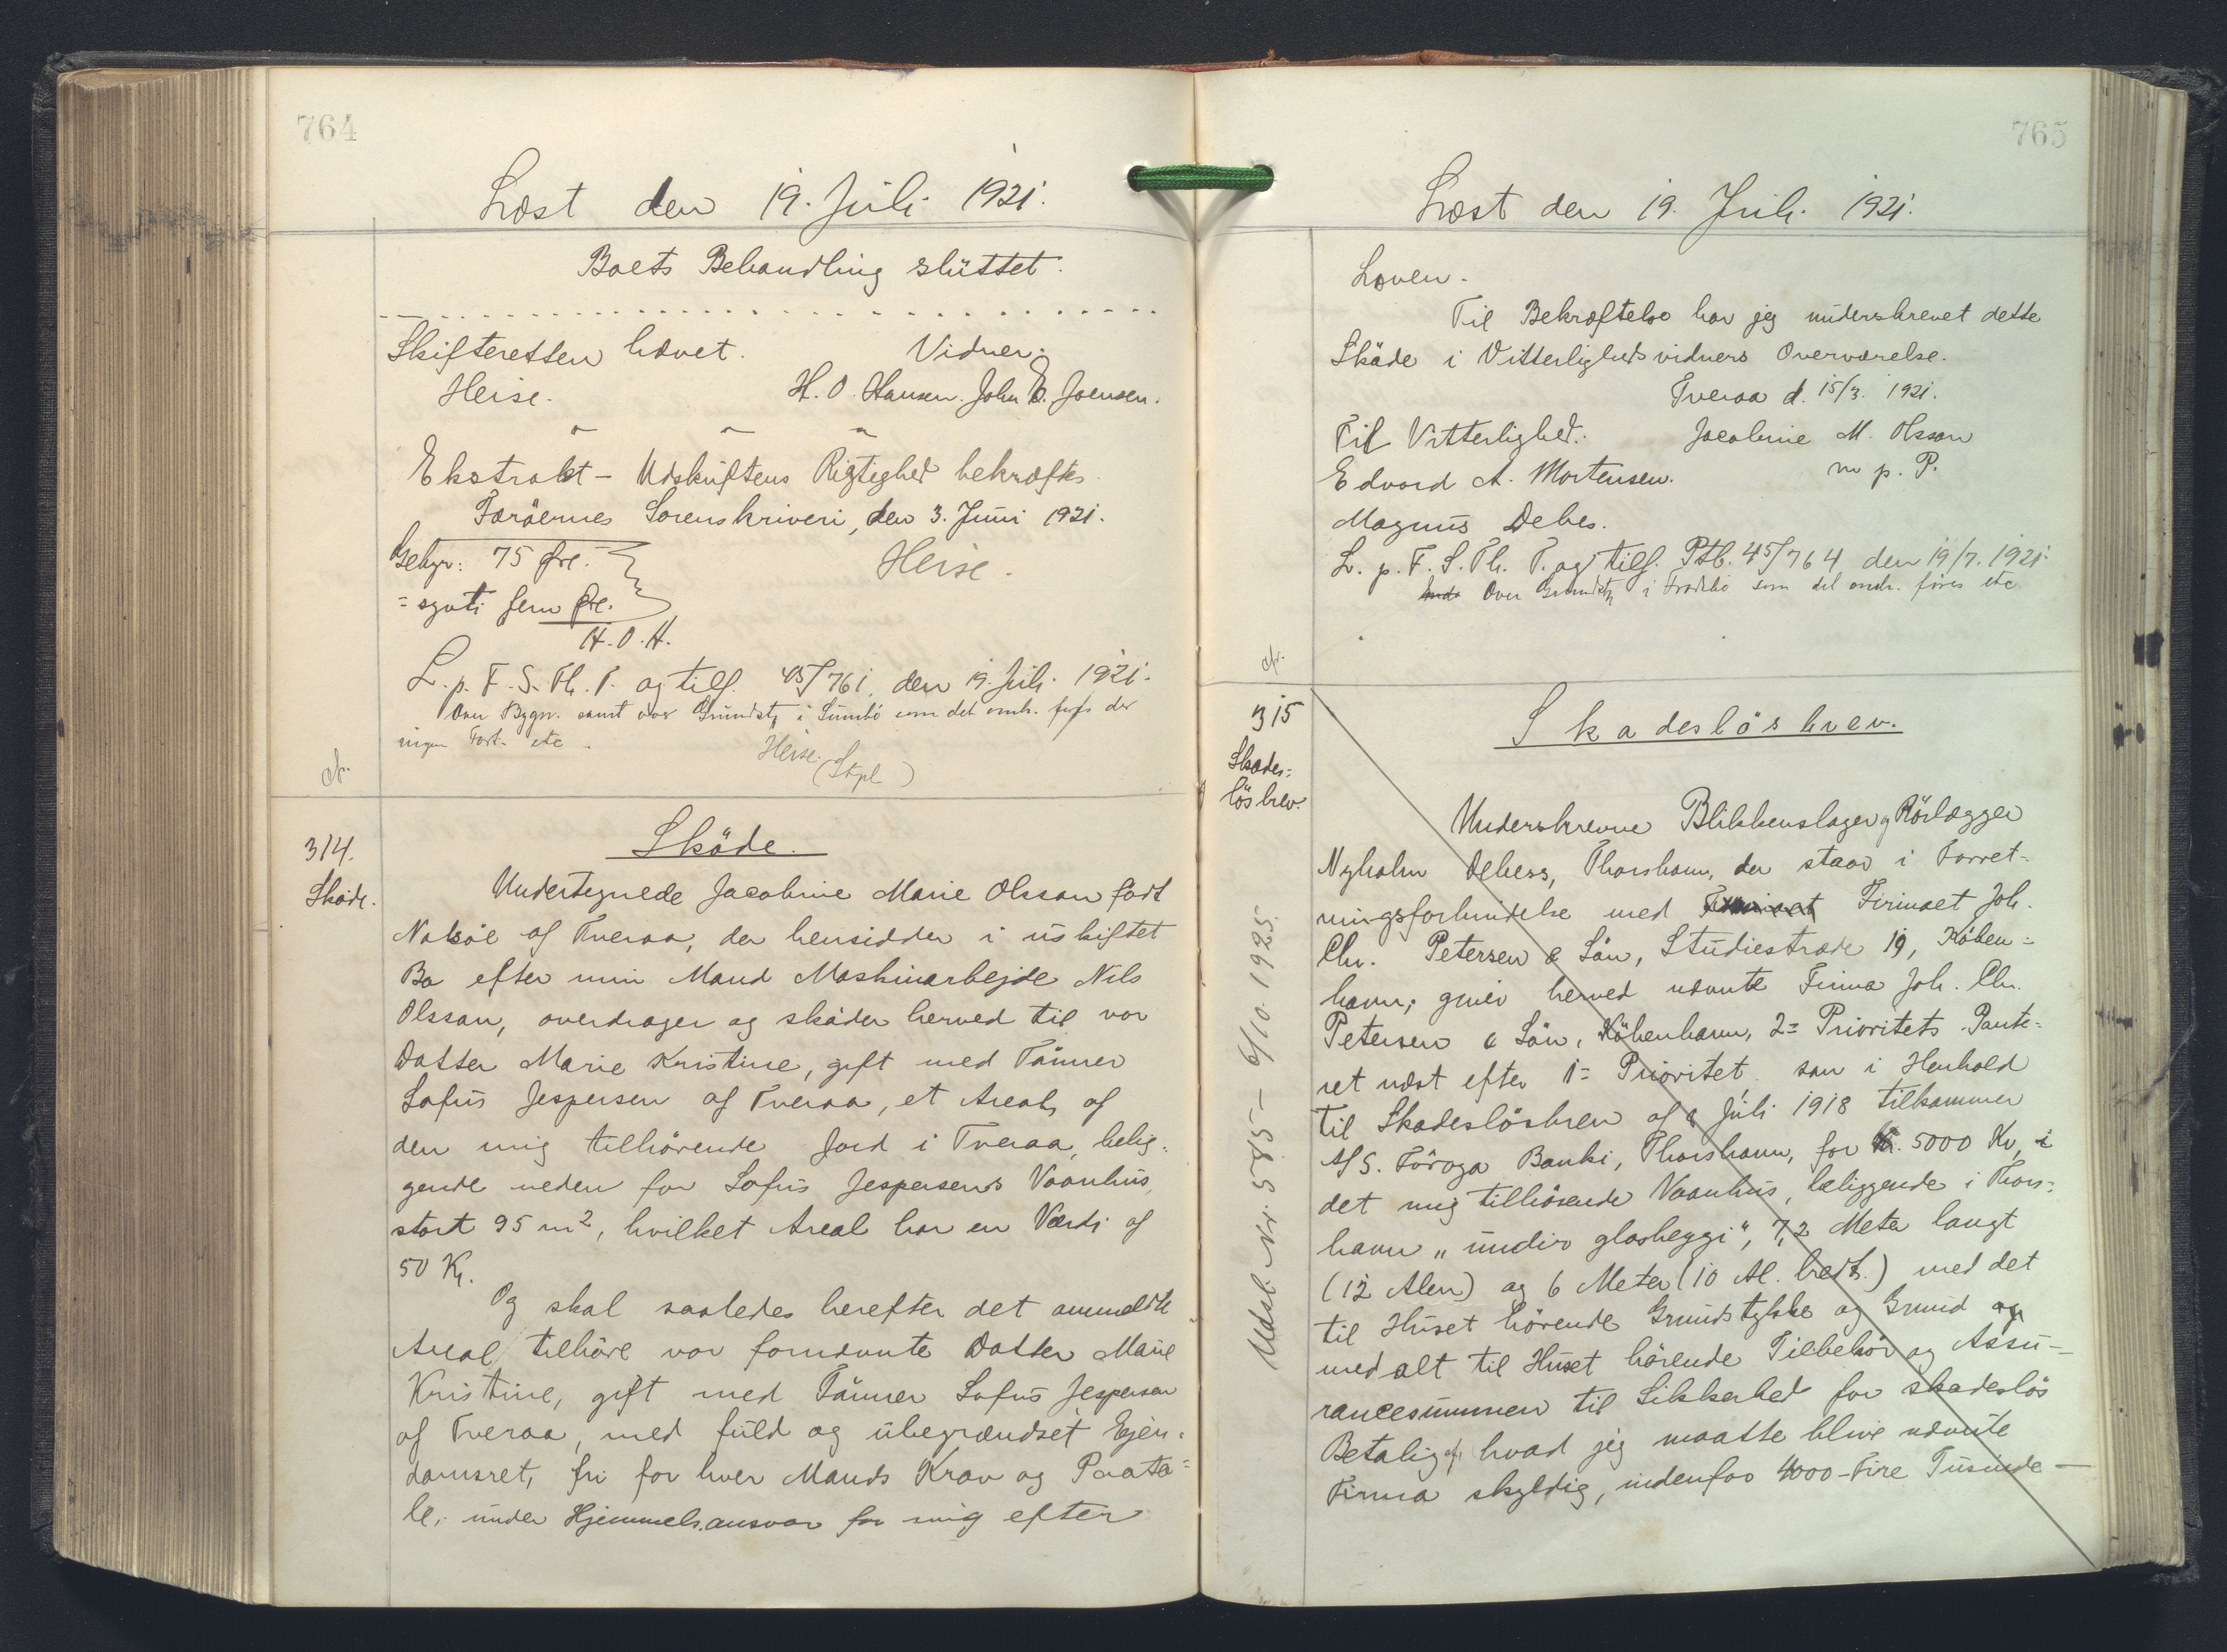 764
Læst den 19. Juli 1921.
Boets Behandling sluttet.
Skifteretten hævet. Vidner:
Heise. H. O. Hansen. John E. Joensen.
Ekstrakt-Udskriftens Rigtighed bekræftes.
Færöernes Sorenskriveri, den 3. Juni 1921.
Gebyr: 75 Øre. Heise.
= syvti fem Øre.
H. O. H.
L. p. F. S. Th. P. og tilf. 45/761, den 19. Juli 1921.
Over Bygn. samt over Grundst. i Sumbö som det omh. föres der
ingen Fort. etc.
Heise. (Stpl)
314.
Sköde.
Sköde.
Undertegnede Jacobine Marie Olsson född
Nolsöe af Tveraa, der hensidder i uskiftet
Bo efter min Mand Maskinarbejde Nils
Olsson, overdrager og sköder herved til vor
Datter Marie Kristine, gift med Tömrer
Lofus Jespersen af Tveraa, et Areal, af
den mig tilhörende Jord i Tveraa, belig-
gende neden for Lofus Jespersens Vaanhus,
stort 95 m², hvilket Areal har en Værdi af
50 Kr.
Og skal saaledes herefter det anmeldte
Areal tilhöre vor fornævnte Datter Marie
Kristine, gift med Tömrer Lofus Jespersen
af Tveraa, med fuld og ubegrændset Ejen-
domsret, fri for hver Mands Krav og Paata-
le, under Hjemmelsansvar for mig efter
765
Læst den 19. Juli 1921.
Loven.
Til Bekræftelse har jeg underskrevet dette
Sköde i Vitterlighedsvidners Overværelse.
Tveraa d. 15/3. 1921.
Til Vitterlighed: Jacobine M. Olsson
Edvard A. Mortensen. m. p. P.
Magnus Debes.
L. p. F. S. Th. P. og tilf. Ptb. 45/764 den 19/7. 1921.
Over Grundst. i Frodebö som det omh. föres etc
315
Skades-
lösbrev.
Skadeslösbrev.
Underskrevne Blikkenslager og Rörlægger
Nyholm Debess, Thorshavn, der staar i Forret-
ningsforbindelse med Firmaet Joh.
Chr. Petersen & Sön, Studiestræde 19, Köben-
havn, giver herved nævnte Firma Joh. Chr.
Petersen & Sön, Köbenhavn, 2= Prioritets Pante-
ret næst efter 1= Prioritet som i Henhold
til Skadeslösbrev af 2 Juli 1918 tilkommer
A/S. Föroya Banki, Thorshavn, for Kr. 5000 Kr, i
det mig tilhörende Vaanhus, beliggende i Thors-
havn "undir glasheyggi", 7,2 Meter langt
(12 Alen) og 6 Meter (10 Al. bredt.) med det
til Huset hörende Grundstykke og Grund og
med alt til Huset hörende Tilbehör og Assu-
rancesummen til Sikkerhed for skadeslös
Betalig af hvad jeg maatte blive nævnte
Firma skyldig, indenfor 4000-Fire Tusinde-
Udsl. Nr. 575 - 6/10. 1925.